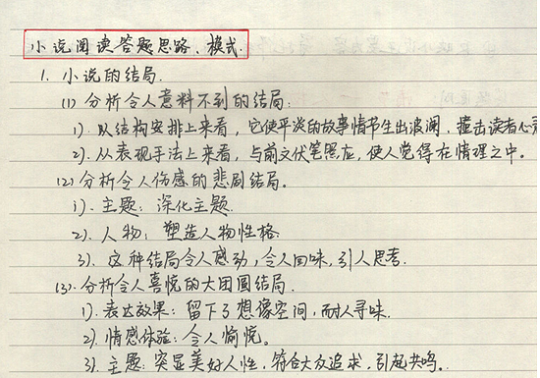 小说阅读答题思路、模式.
1. 小说的结局.
(1) 分析令人意料不到的结局:
1). 从结构安排上来看, 它使平淡的故事情节生出波澜, 撞击读者心灵
2). 从表现手法上来看, 与前文伏笔照应, 使人觉得在情理之中。
(2) 分析令人伤感的悲剧结局。
1). 主题: 深化主题.
2). 人物: 塑造人物性格.
3). 这种结局令人感动, 令人回味, 引人思考.
(3). 分析令人喜悦的大团圆结局.
1). 表达效果: 留下了想像空间, 耐人寻味.
2). 情感体验: 令人愉悦。
3). 主题: 突显美好人性, 符合大众追求, 引起共鸣.